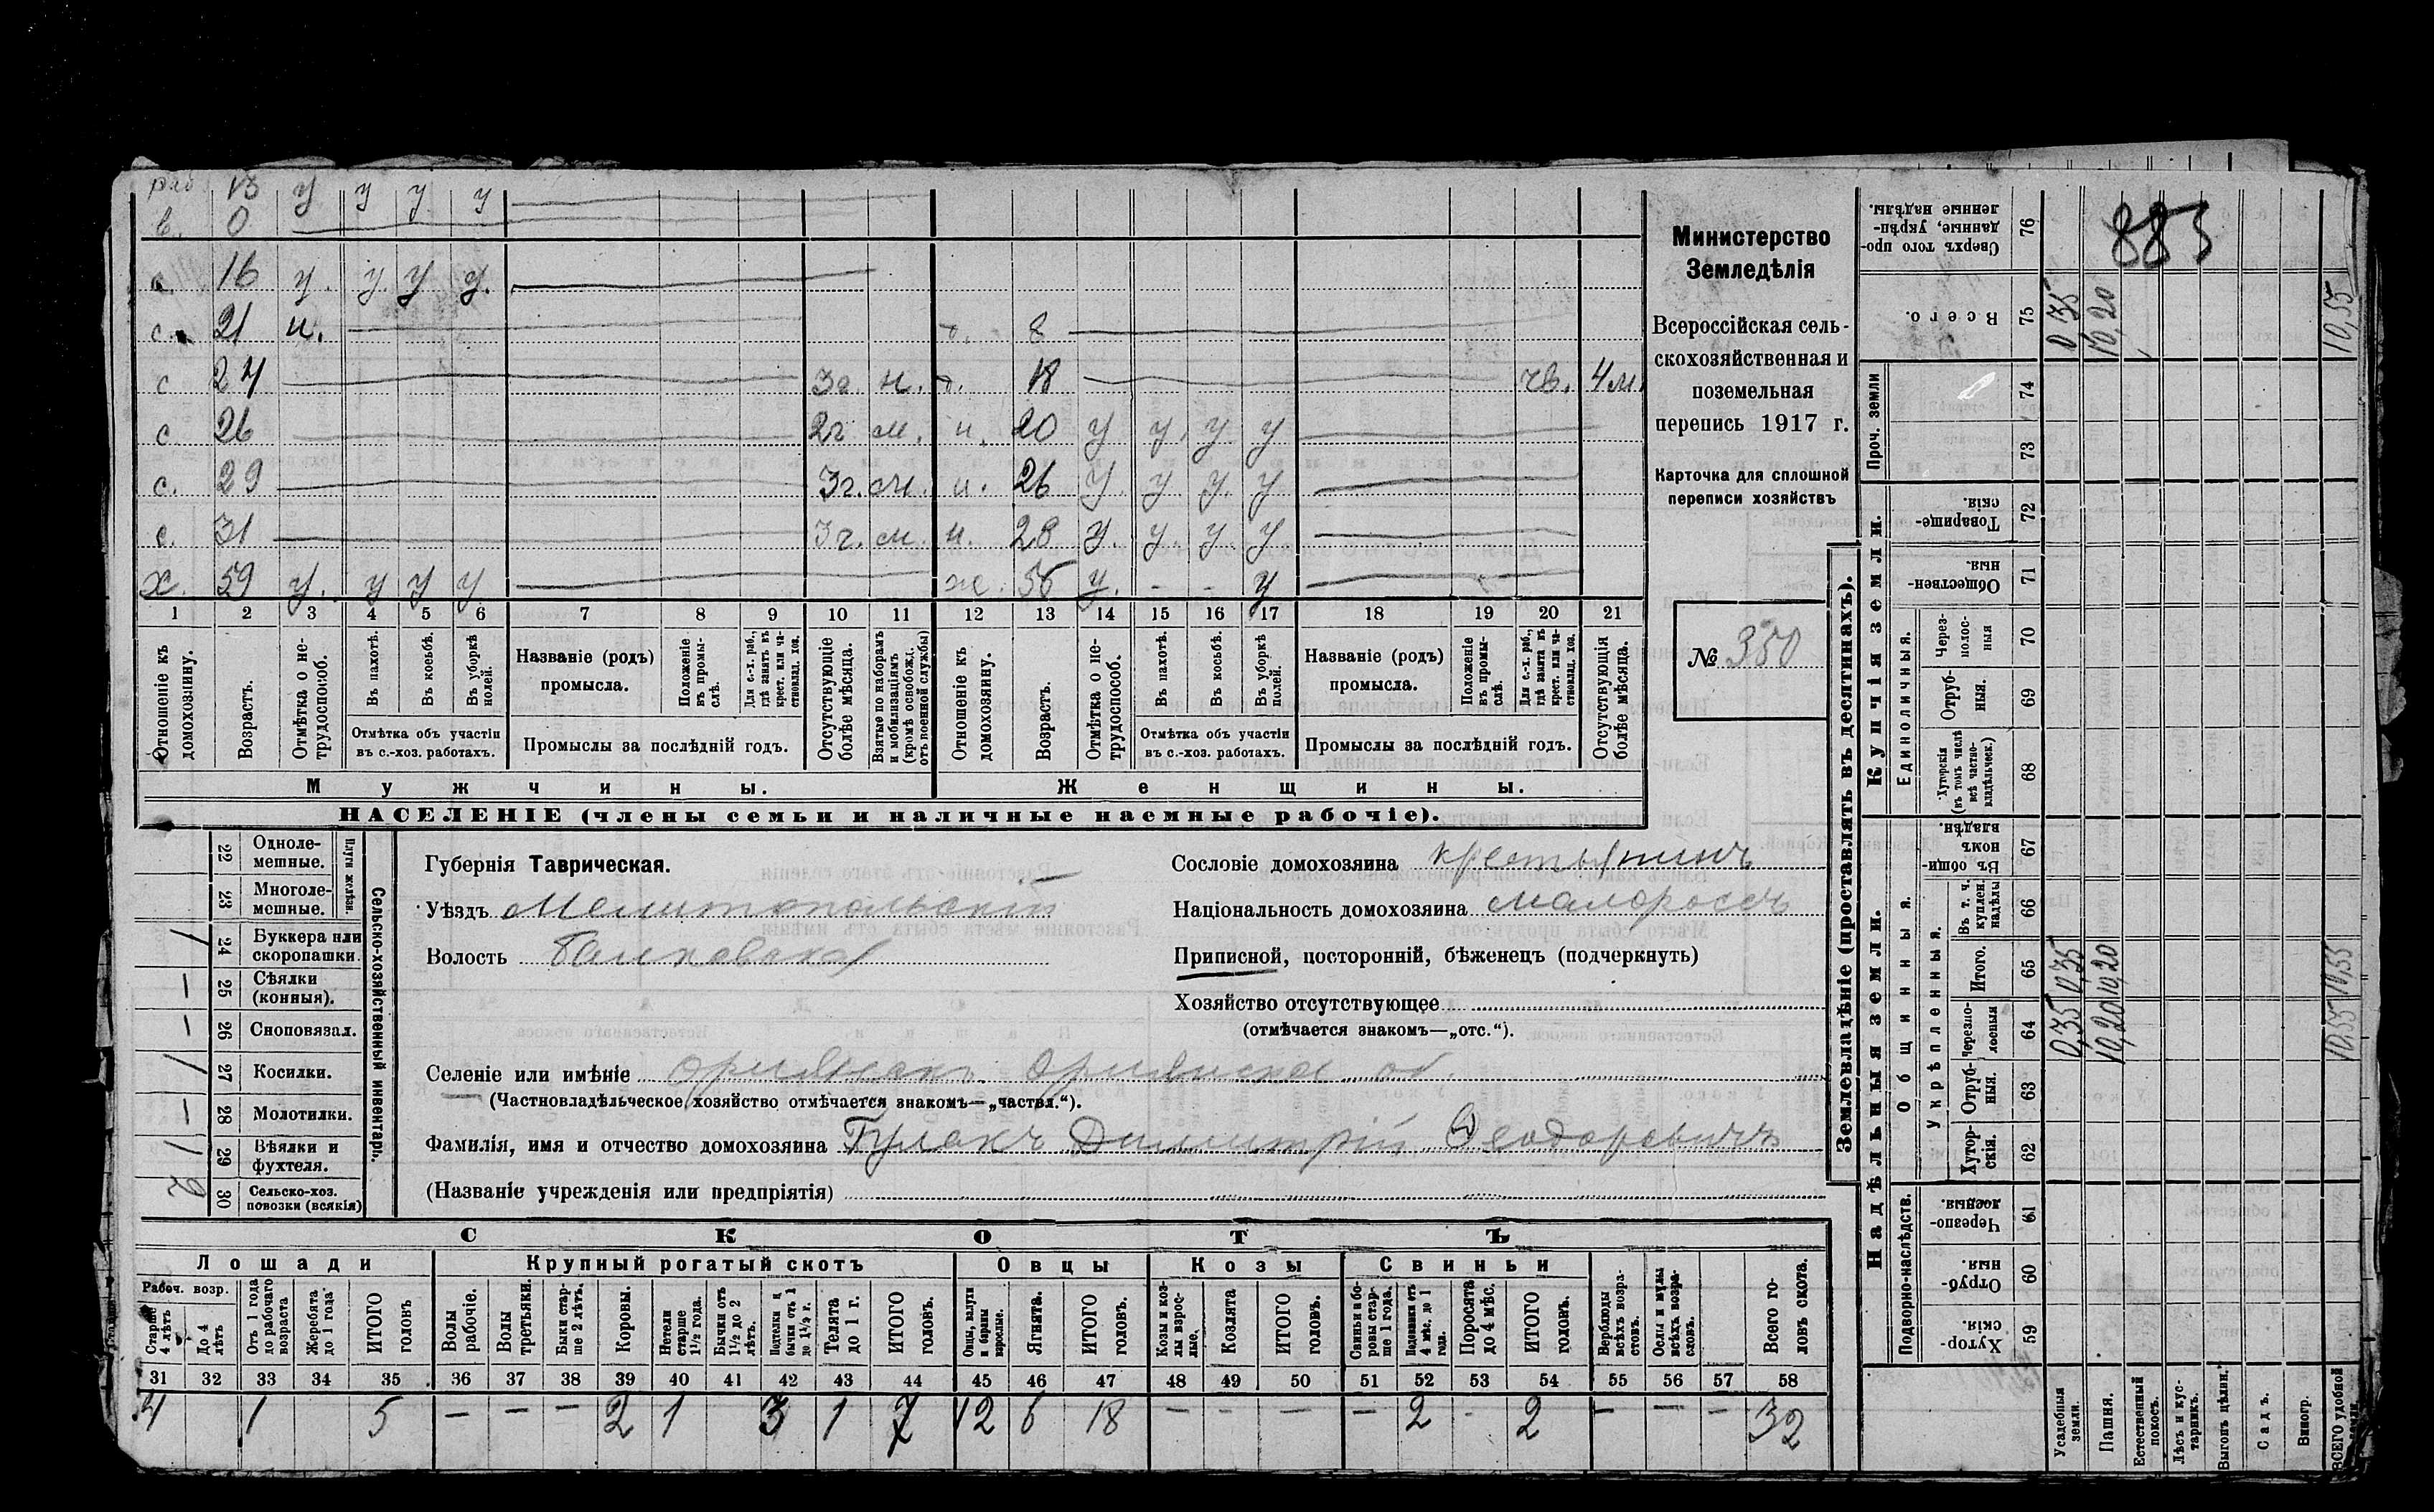 раб 13 у у у у
в. 0
с. 16 у. у. у у.
с. 21 и. 8
с 24 3г. н. 18 4м.
с 26 2г м. н. 20 у у. у у
с. 29 3г. м. н. 26 у. у у. у
с. 31 3г. м. н. 28 у. у. у у
х. 59 у. у у у ж. 56 у. - - у
1 2 3 4 5 6 7 8 9 10 11 12 13 14 15 16 17 18 19 20 21
Отношеніе къ домохозяину.
Возрастъ.
Отмѣтка о нетрудоспособ.
Въ пахотѣ.
Въ косьбѣ.
Въ уборкѣ полей.
Отмѣтка объ участіи въ с.-хоз. работахъ.
Названіе (родъ) промысла.
Положеніе въ промыслѣ.
Для с.-х. раб., гдѣ занятъ въ крест. или частновлад. хоз.
Промыслы за послѣдній годъ.
Отсутствующіе болѣе мѣсяца.
Взятые по наборамъ и мобилизаціямъ (кромѣ освобожд. отъ военной службы)
Отношеніе къ домохозяину.
Возрастъ.
Отмѣтка о нетрудоспособ.
Въ пахотѣ.
Въ косьбѣ.
Въ уборкѣ полей.
Отмѣтка объ участіи въ с.-хоз. работахъ.
Названіе (родъ) промысла.
Положеніе въ промыслѣ.
Для с.-х. раб., гдѣ занята въ крест. или частновлад. хоз.
Промыслы за послѣдній годъ.
Отсутствующія болѣе мѣсяца.
Мужчины.
Женщины.
НАСЕЛЕНІЕ (члены семьи и наличные наемные рабочіе).
Министерство
Земледѣлія
Всероссійская сель-
скохозяйственная и
поземельная
перепись 1917 г.
Карточка для сплошной
переписи хозяйствъ
№ 350
Сельско-хозяйственный инвентарь.
Плуги желѣзн.
22 Одноле-
мешные.
23 Многоле-
мешные.
/ 24 Буккера или
скоропашки.
— 25 Сѣялки
(конныя).
— 26 Сноповязал.
/ 27 Косилки.
— 28 Молотилки.
/ 29 Вѣялки и
фухтеля.
2 30 Сельско-хоз.
повозки (всякія)
Губернія Таврическая.
Уѣздъ Мелитопольскій
Волость Балковская
Сословіе домохозяина крестьянинъ
Національность домохозяина малороссъ
Приписной, посторонній, бѣженецъ (подчеркнуть)
Хозяйство отсутствующее
(отмѣчается знакомъ—„отс.“).
Селеніе или имѣніе
(Частновладѣльческое хозяйство отмѣчается знакомъ—„частвл.“).
Фамилія, имя и отчество домохозяина Гулакъ Димитрій Ѳеодоровичъ
(Названіе учрежденія или предпріятія)
СКОТЪ
Лошади
Крупный рогатый скотъ
Овцы
Козы
Свиньи
Рабоч. возр.
Старше 4 лѣтъ
До 4 лѣтъ
Отъ 1 года до рабочаго возраста
Жеребята до 1 года
ИТОГО головъ
Волы рабочіе.
Волы третьяки.
Быки старше 2 лѣтъ.
Коровы.
Нетели старше 1½ года.
Бычки отъ 1½ до 2 лѣтъ.
Подтелки и бычки отъ 1 до 1½ г.
Телята до 1 г.
ИТОГО головъ.
Овцы, валухи и бараны взрослые.
Ягнята.
ИТОГО головъ.
Козы и козлы взрослые.
Козлята
ИТОГО головъ.
Свиньи и боровы старше 1 года.
Подсвинки отъ 4 мѣс. до 1 года.
Поросята до 4 мѣс.
ИТОГО головъ.
Верблюды всѣхъ возрастовъ.
Ослы и мулы всѣхъ возрастовъ.
Всего головъ скота.
31 32 33 34 35 36 37 38 39 40 41 42 43 44 45 46 47 48 49 50 51 52 53 54 55 56 57 58
4 1 5 — — — 2 1 3 1 7 12 6 18 — — — — 2 - 2 — — — 32
Землевладѣніе (проставлять въ десятинахъ).
885
Сверхъ того проданные, укрѣпленные надѣлы. 76
Всего. 75 0,35 10,20 10,55
Проч. земли 74
73
Купчія земли.
Товарищескія. 72
Общественныя. 71
Единоличныя.
Черезполосныя 70
Отрубныя. 69
Хуторскія (въ томъ числѣ всѣ частновладѣльческ.) 68
Надѣльныя земли.
Общинныя.
Въ общинномъ владѣн. 67
Укрѣпленныя.
Въ т. ч. куплен. надѣлы 66
Итого. 65 0,35 10,20 10,55
Черезполосныя 64 0,35 10,20 10,55
Отрубныя. 63
Хуторскія. 62
Подворно-наслѣдств.
Черезполосныя. 61
Отрубныя. 60
Хуторскія. 59
Усадебныя земли.
Пашня.
Естественный покосъ.
Лѣсъ и кустарникъ.
Выгонъ цѣлин.
Садъ.
Виногр.
ВСЕГО удобной земли.